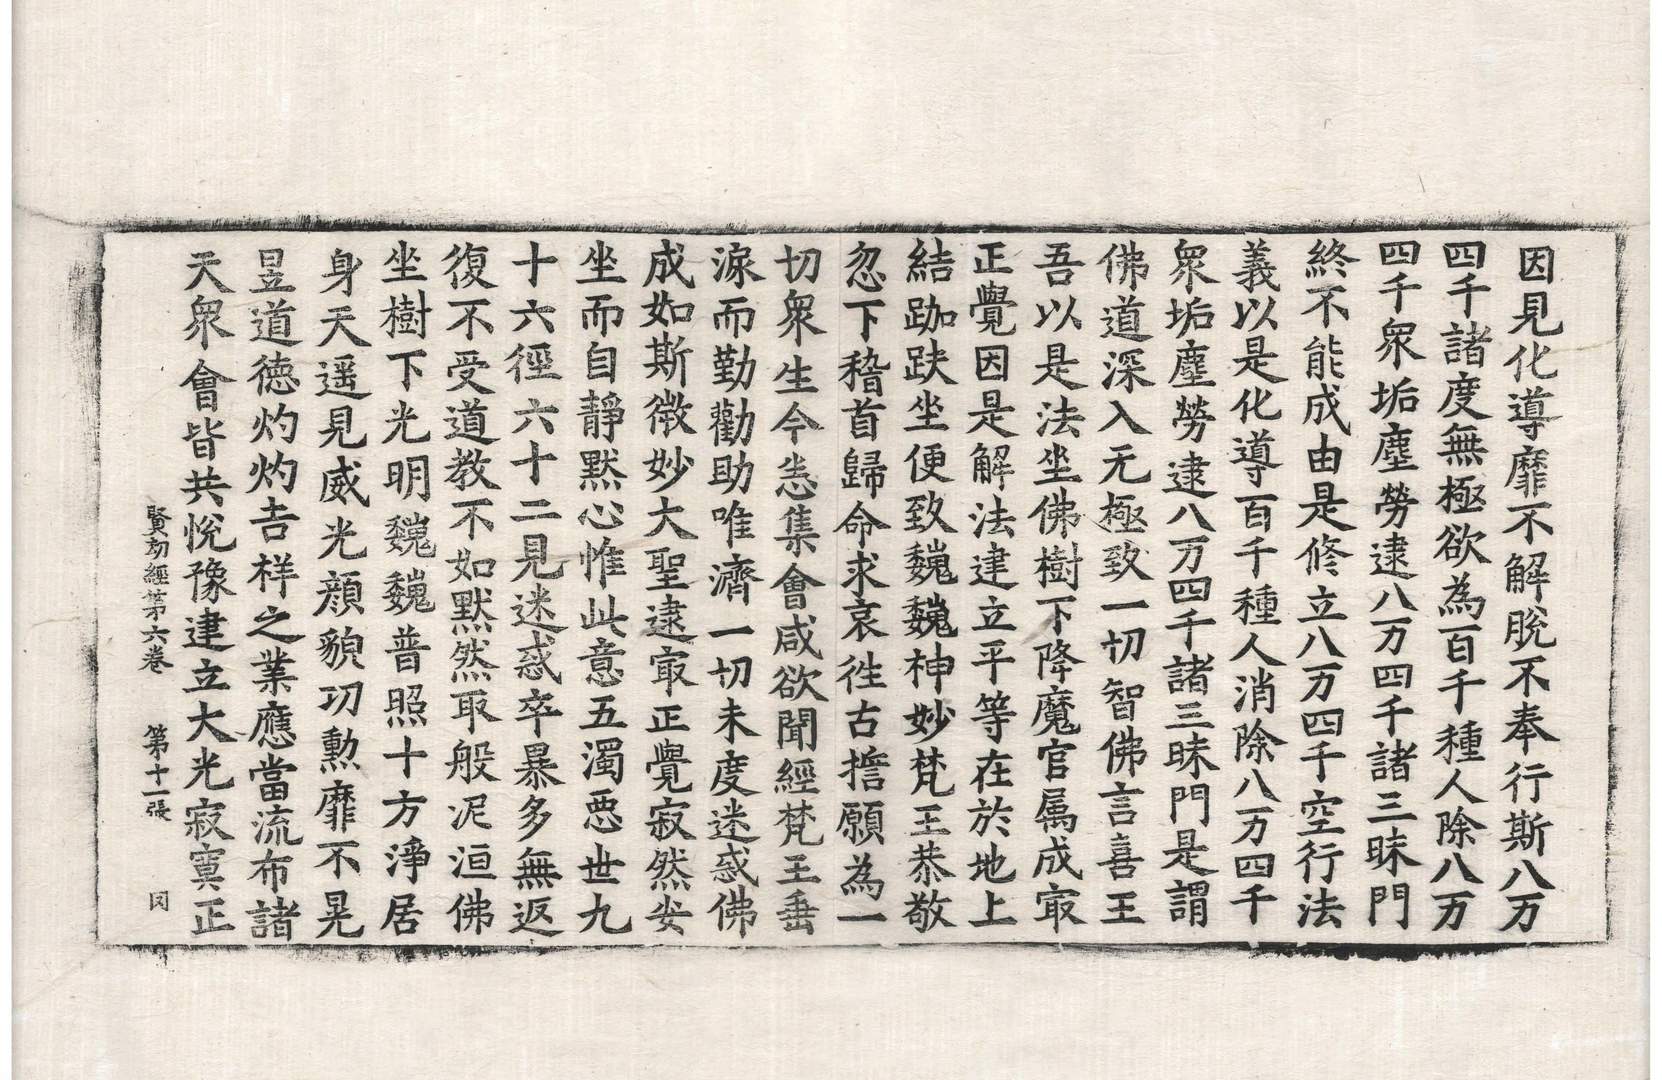 因見化導靡不解脫不奉行斯八万
四千諸度無極欲為百千種人除八万
四千衆垢塵勞逮八万四千諸三昧門
終不能成由是修立八万四千空行法
義以是化導百千種人消除八万四千
衆垢塵勞逮八万四千諸三昧門是謂
佛道深入无極致一切智佛言喜王
吾以是法坐佛樹下降魔官属成㝡
正覺因是解法建立平等在於地上
結跏趺坐便致巍巍神妙梵王恭敬
忽下稽首歸命求哀徃古擔願為一
切衆生今恙集會咸欲聞經梵王垂
淚而勤勸助唯濟一切未度迷惑佛
成如斯微妙大聖逮㝡正覺寂然安
坐而自靜默心惟此意五濁惡世九
十六徑六十二見迷惑卒暴多無返
復不受道教不如默然取般泥洹佛
坐樹下光明巍巍普照十方淨居
身天遥見威光顔貌功勲靡不晃
昱道德灼灼吉祥之業應當流布諸
天衆會皆共悅豫建立大光寂寞正
賢劫經第六卷 第十一張 㓁